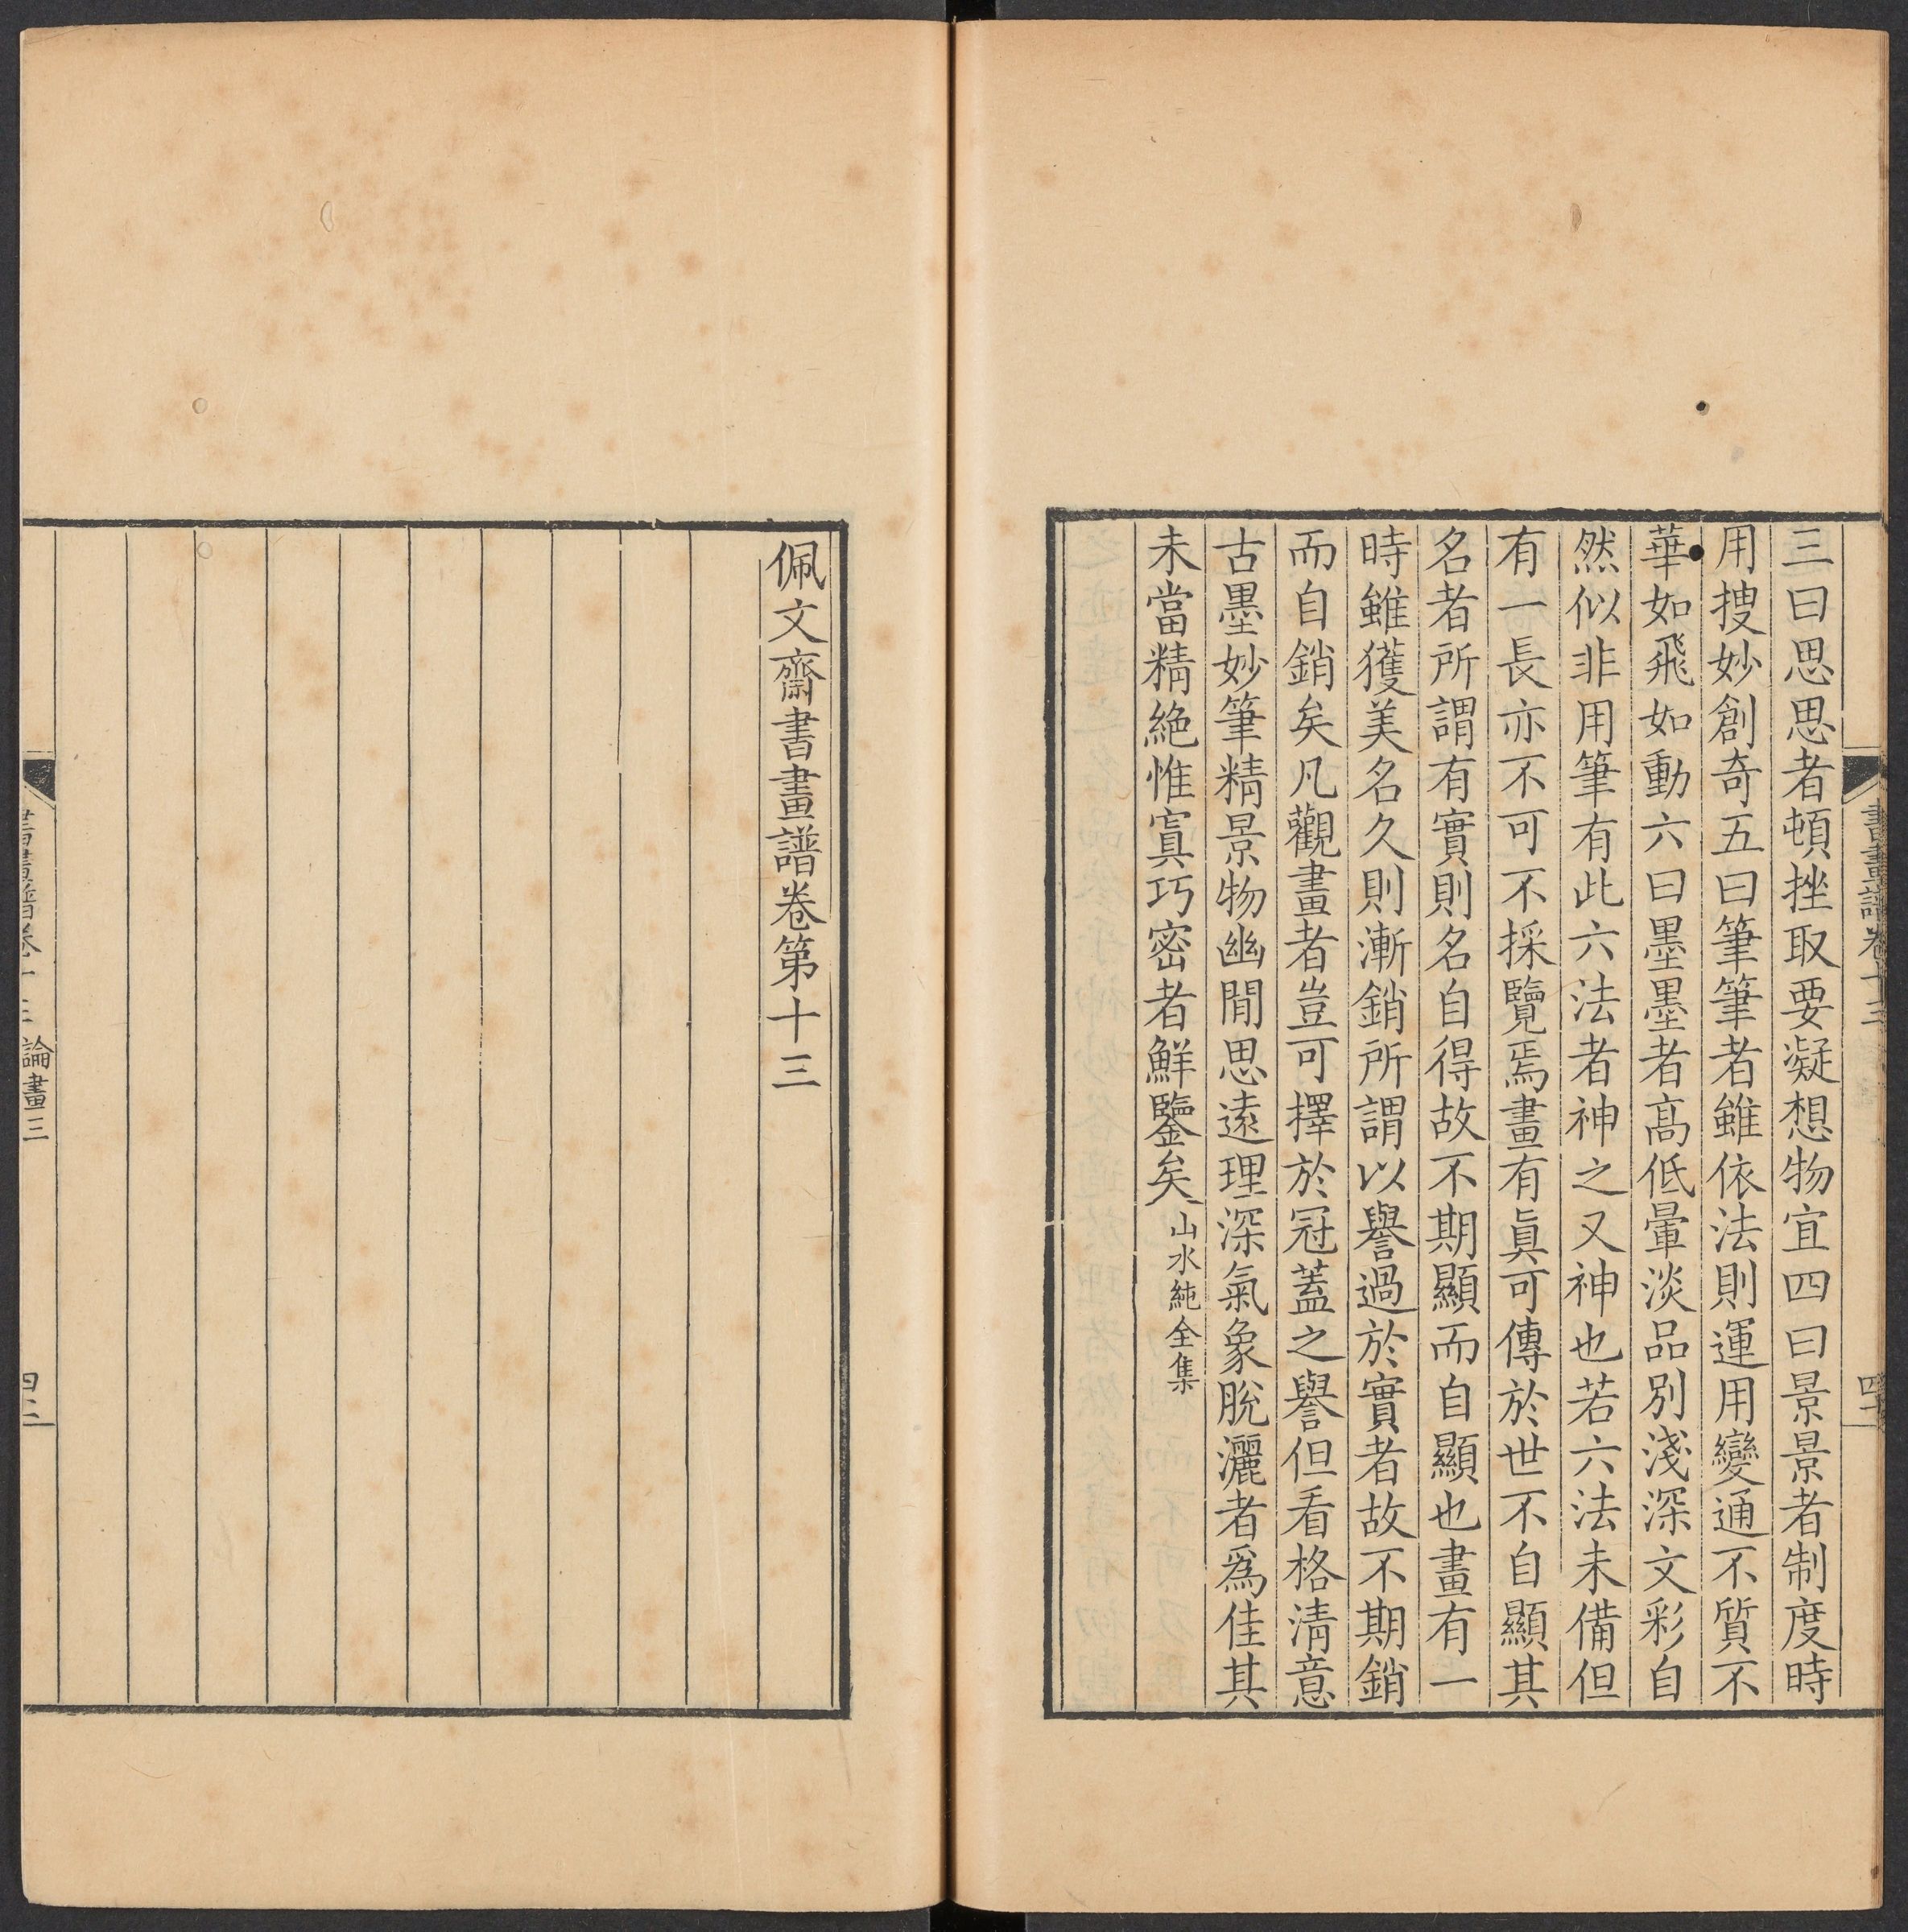 三曰思思者頓挫取要凝想物宜四曰景景者制度時
用搜妙創奇五曰筆筆者雖依法則運用變通不質不
華如飛如動六曰墨墨者高低暈淡品別淺深文彩自
然似非用筆有此六法者神之又神也若六法未備但
有一長亦不可不採覽焉畫有眞可傳於世不自顯其
名者所謂有實則名自得故不期顯而自顯也畫有一
時雖獲美名久則漸銷所謂以譽過於實者故不期銷
而自銷矣凡觀畫者豈可擇於冠蓋之譽但看格淸意
古墨妙筆精景物幽閒思遠理深氣象脫灑者爲佳其
未當精絶惟寘巧密者鮮鑒矣山水純全集
佩文齋書畫譜卷第十三
書畫譜卷十三 論畫三